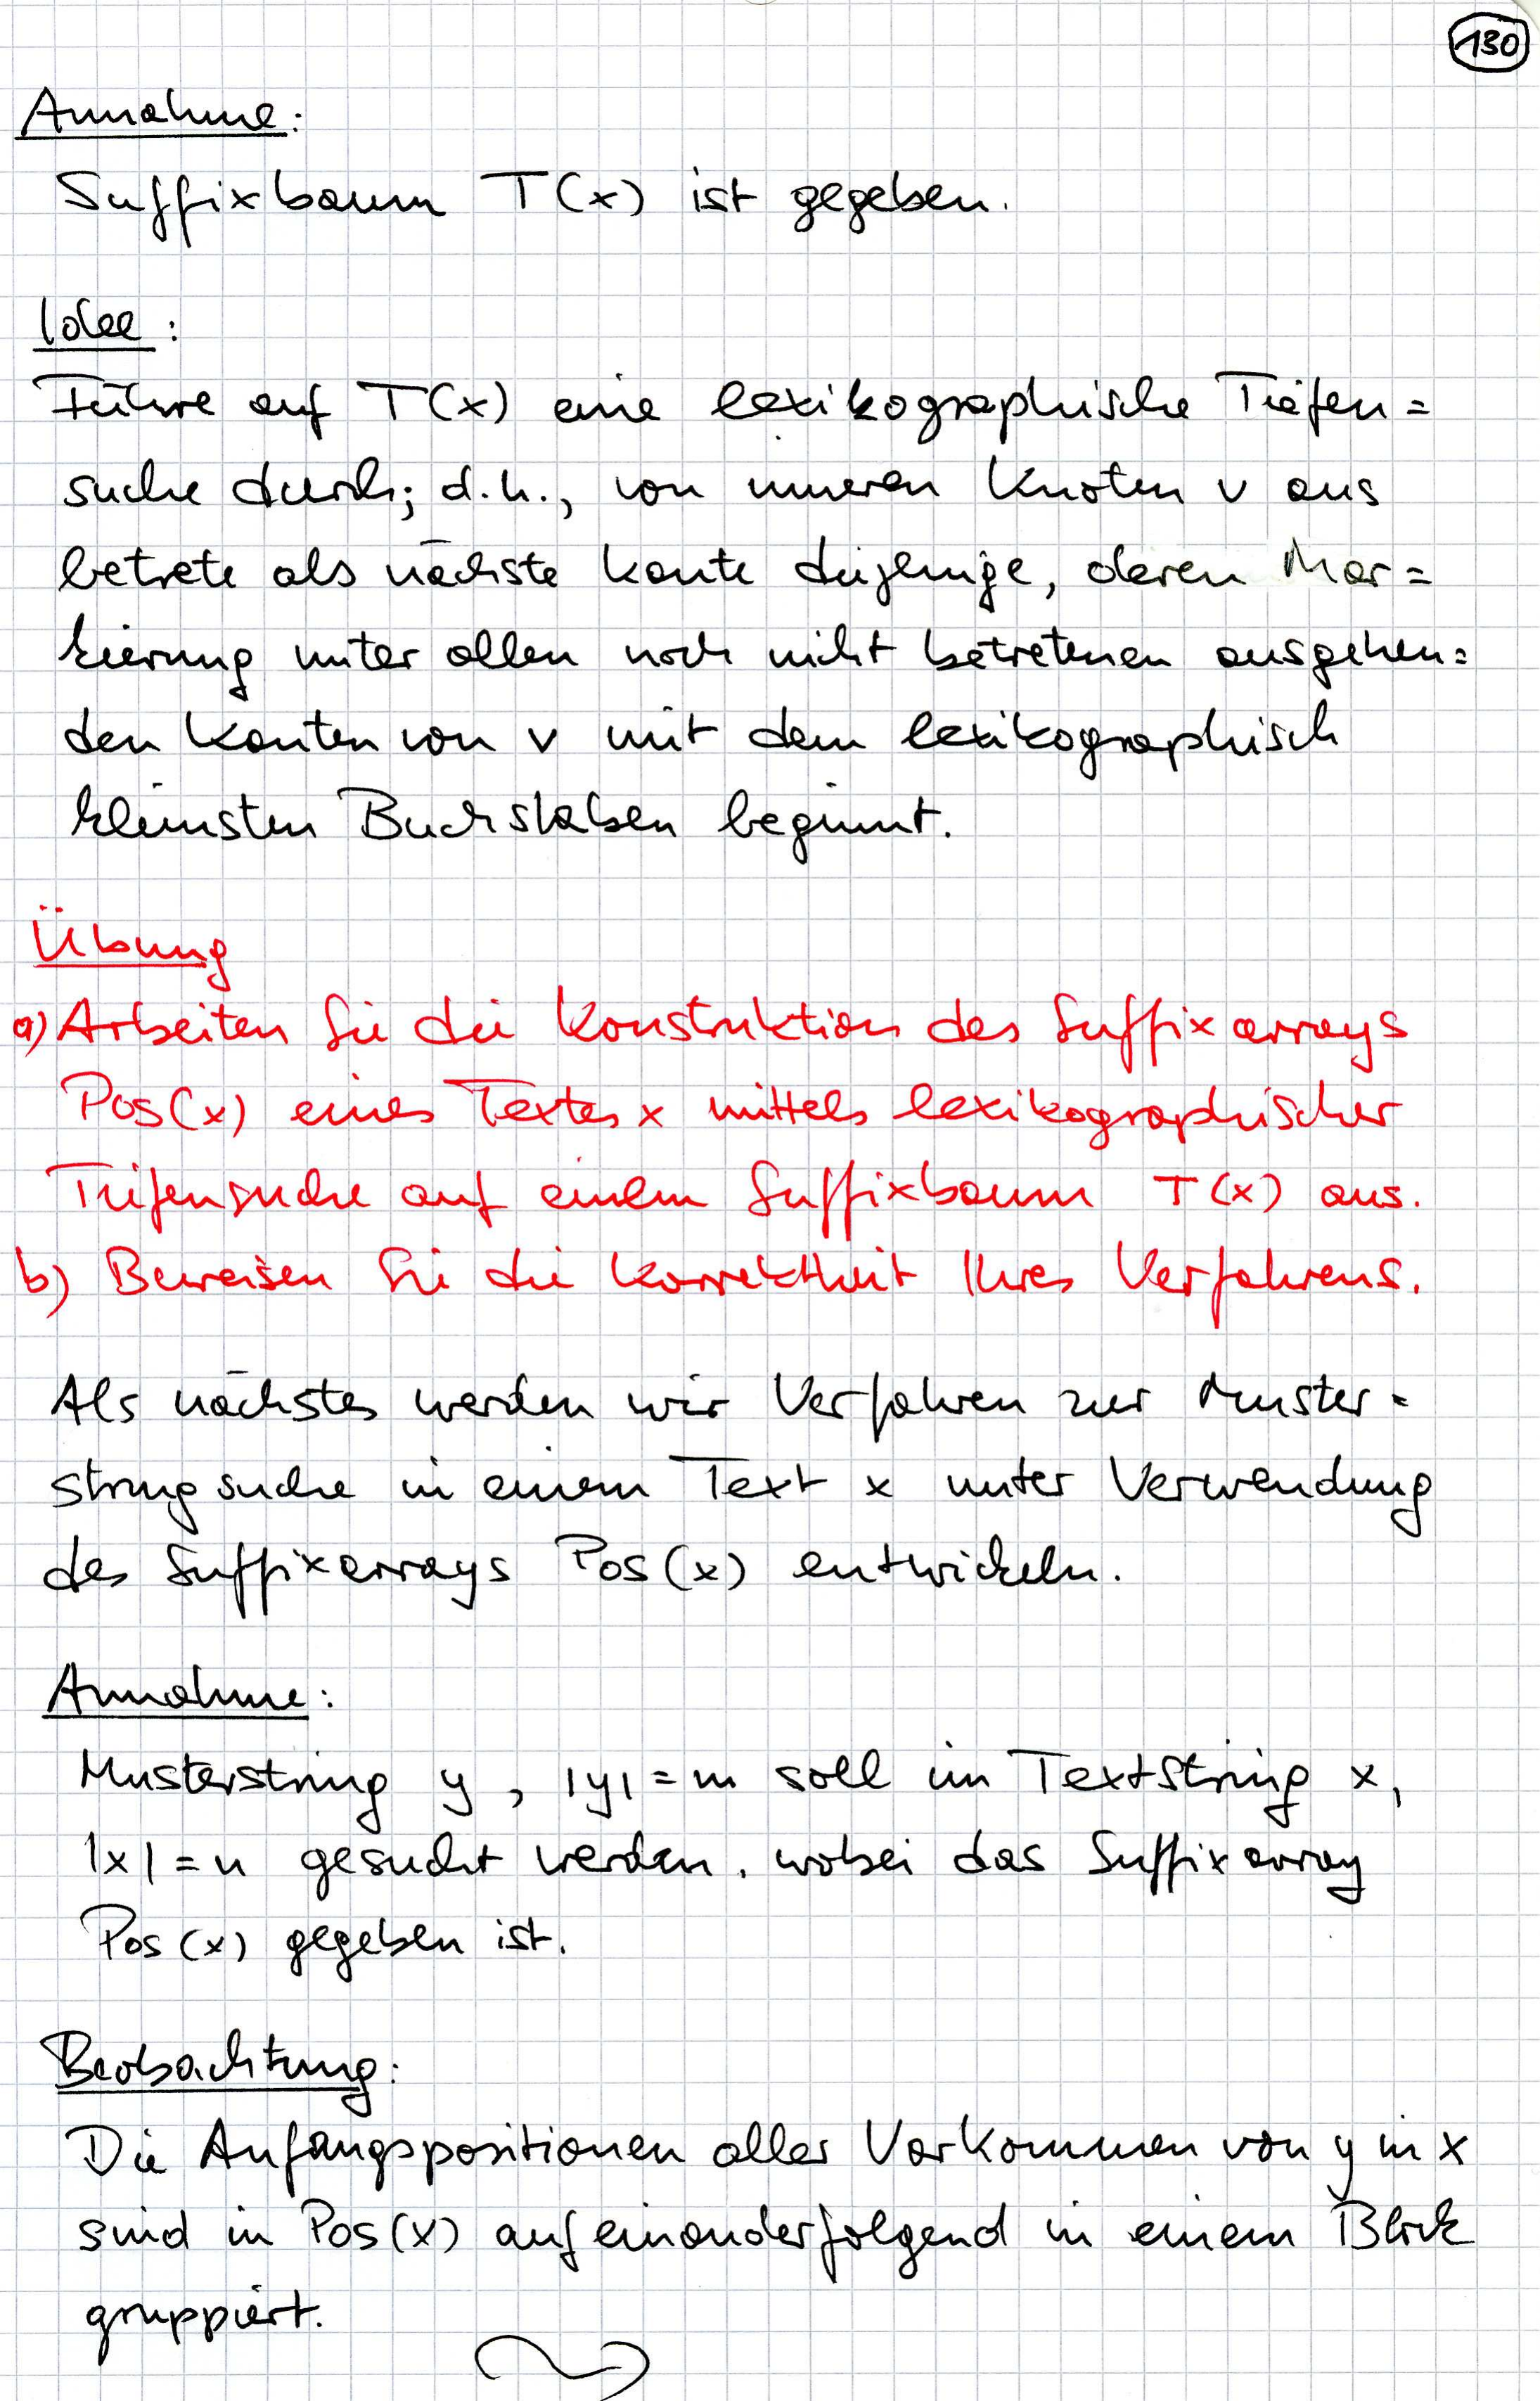 130
Annahme:
Suffixbaum T(x) ist gegeben.
Idee:
Führe auf T(x) eine lexikographische Tiefen=
suche durch; d.h., von inneren Knoten v aus
betrete als nächste Kante diejenige, deren Mar=
kierung unter allen noch nicht betretenen ausgehen=
den Kanten von v mit dem lexikographisch
kleinsten Buchstaben beginnt.
Übung
a) Arbeiten Sie die Konstruktion des Suffixarrays
Pos(x) eines Textes x mittels lexikographischer
Tiefensuche auf einem Suffixbaum T(x) aus.
b) Beweisen Sie die Korrektheit Ihres Verfahrens.
Als nächstes werden wir Verfahren zur Muster=
stringsuche in einem Text x unter Verwendung
des Suffixarrays Pos(x) entwickeln.
Annahme:
Musterstring y, |y| = m soll im Textstring x,
|x| = n gesucht werden, wobei das Suffixarray
Pos(x) gegeben ist.
Beobachtung:
Die Anfangspositionen aller Vorkommen von y in x
sind in Pos(x) aufeinanderfolgend in einem Block
gruppiert.